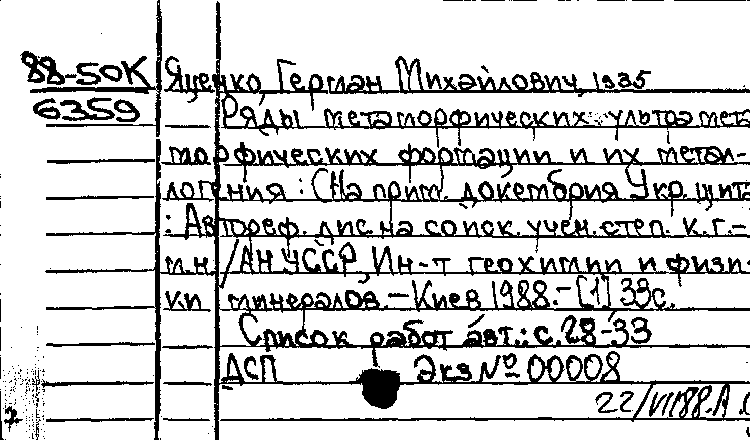 88-50К Яценко, Герман Михайлович, 1935
6359 Ряды метаморфических ультрамета
морфических формации и их метал-
логения : (На прим. докембрия Укр. щита
: Автореф. дис. на соиск. учен. степ. к.г.-
м.н. /АН УССР, Ин-т геохимии и физи-
ки минералов.-Киев 1988.-[1] 33с.
Список работ авт.: с.28-33
ДСП Экз № 00008
22/VII88.А